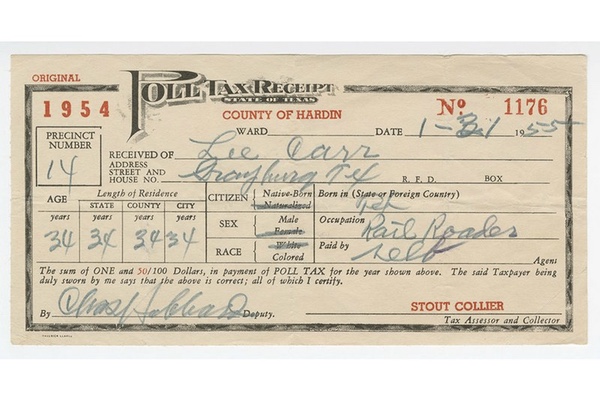 ORIGINAL
POLL TAX RECEIPT
STATE OF TEXAS
1954
COUNTY OF HARDIN
No 1176
WARD DATE 1-31 1955
PRECINCT NUMBER 14
RECEIVED OF Lee Carr
ADDRESS STREET AND HOUSE NO. Grayburg Tex R. F. D. BOX
AGE Length of Residence CITIZEN Native-Born Naturalized Born in (State or Foreign Country) Tex
years STATE years COUNTY years CITY years
34 34 34 34
SEX Male Female Occupation Rail Roader
RACE White Colored Paid by self Agent
The sum of ONE and 50/100 Dollars, in payment of POLL TAX for the year shown above. The said Taxpayer being
duly sworn by me says that the above is correct; all of which I certify.
By Chas Hubbard Deputy.
STOUT COLLIER
Tax Assessor and Collector